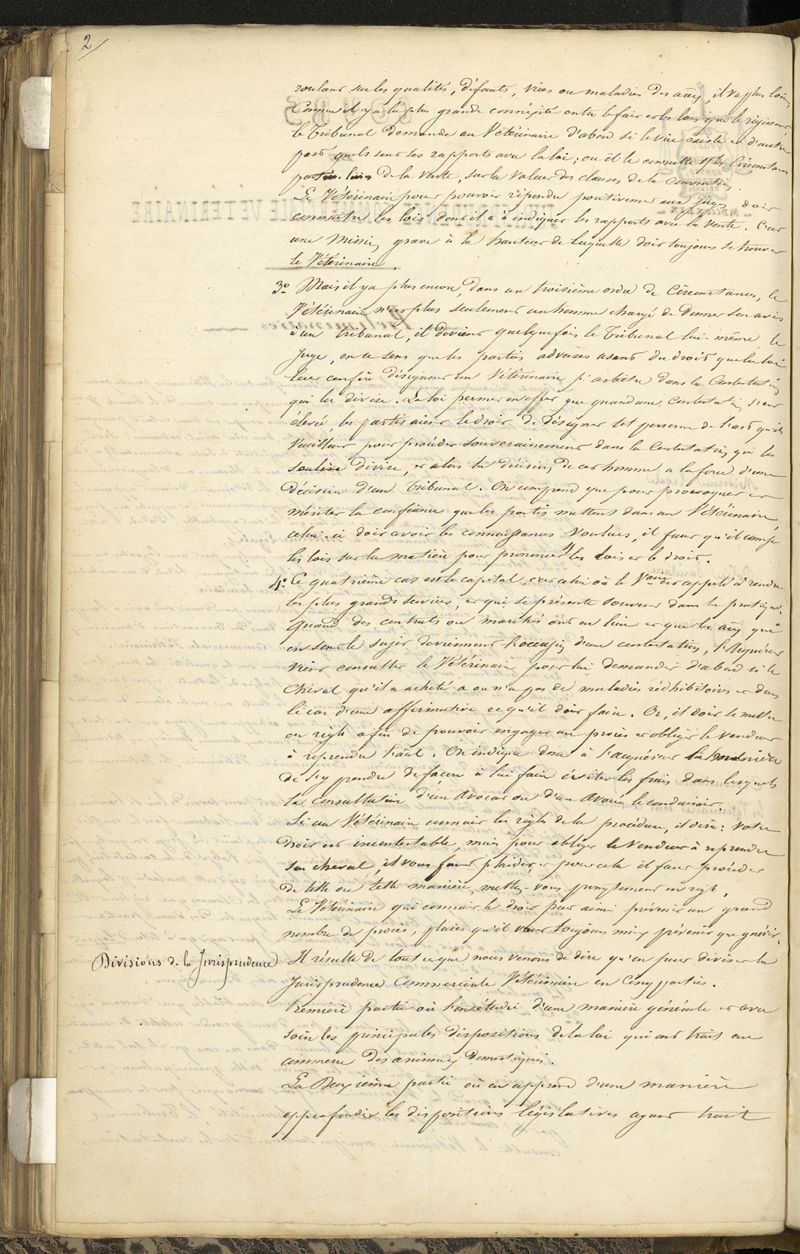 2/
roulant sur les qualités, défauts, vices ou maladies des aux, il va plus loin
Comme il y a la plus grande connexité entre le fait et les lois qui le régissent
le Tribunal demande au Vétérinaire d'abord si le vice existe et d'autre
part quels sont ses rapports avec la loi, ou il le consulte sur les circonstances
de la Vente, sur la valeur des clauses de la Convention.
Le Vétérinaire pour pouvoir répondre positivement aux juges doit
connaître les lois dont il a à indiquer les rapports avec la Vente. C'est
une mission grave à la hauteur de laquelle doit toujours se trouver
le Vétérinaire.
3o. Mais il y a plus encore, dans un troisième ordre de Circonstances, le
Vétérinaire n'est plus seulement un homme chargé de donner son avis
à un Tribunal, il devient quelquefois le Tribunal lui-même, le
Juge, en ce sens que les parties adverses usant du droit que la loi
leur confère désignent un Vétérinaire pr arbitre dans la Contestation
qui les divise. La loi permet en effet que quand une contestation s'est
élevée, les parties aient le droit de désigner telle personne de l'art qu'ils
veuillent pour procéder souverainement dans la Contestation qui les
divise, et alors la décision de cet homme a la force d'une
décision d'un Tribunal. On comprend que pour provoquer et
mériter la confiance que les parties mettent dans un Vétérinaire,
celui-ci doit avoir les connaissances voulues, il faut qu'il connaisse
les lois sur la matière pour prononcer les lois et le droit.
4o. Ce quatrième cas est le capital, c'est celui où le Vre est appelé à rendre
les plus grands services, et qui se présente souvent dans la pratique.
Quand des contrats ou marchés ont eu lieu et que les aux qui
en sont le sujet deviennent l'occasion d'une contestation, l'acquéreur
vient consulter le Vétérinaire pour lui demander d'abord si le
Cheval qu'il a acheté a ou n'a pas de maladies rédhibitoires et dans
le cas d'une affirmative ce qu'il doit faire. Or, il doit le mettre
en règle afin de pouvoir engager un procès et obliger le Vendeur
à reprendre l'aal. On indique donc à l'acquéreur la manière
de s'y prendre de façon à lui faire éviter les frais dans lesquels
la consultation d'un Avocat ou d'un Avoué le conduirait.
Si un Vétérinaire connaît les règles de la procédure, il dira: Votre
droit est incontestable, mais pour obliger le Vendeur à reprendre
son cheval, il vous faut plaider, et pour cela il faut procéder
de telle ou telle manière, mettez-vous promptement en règle.
Le Vétérinaire qui connaît le droit peut ainsi prévenir un grand
nombre de procès, parce qu'il vaut toujours mieux prévenir que guérir.
Divisions de la Jurisprudence
Il résulte de tout ce que nous venons de dire qu'on peut diviser la
Jurisprudence Commerciale Vétérinaire en Cinq parties.
Première partie où l'on étudie d'une manière générale et avec
soin les principales dispositions de la loi qui ont trait au
commerce des animaux domestiques.
La Deuxième partie où on apprend d'une manière
approfondie les dispositions législatives ayant trait